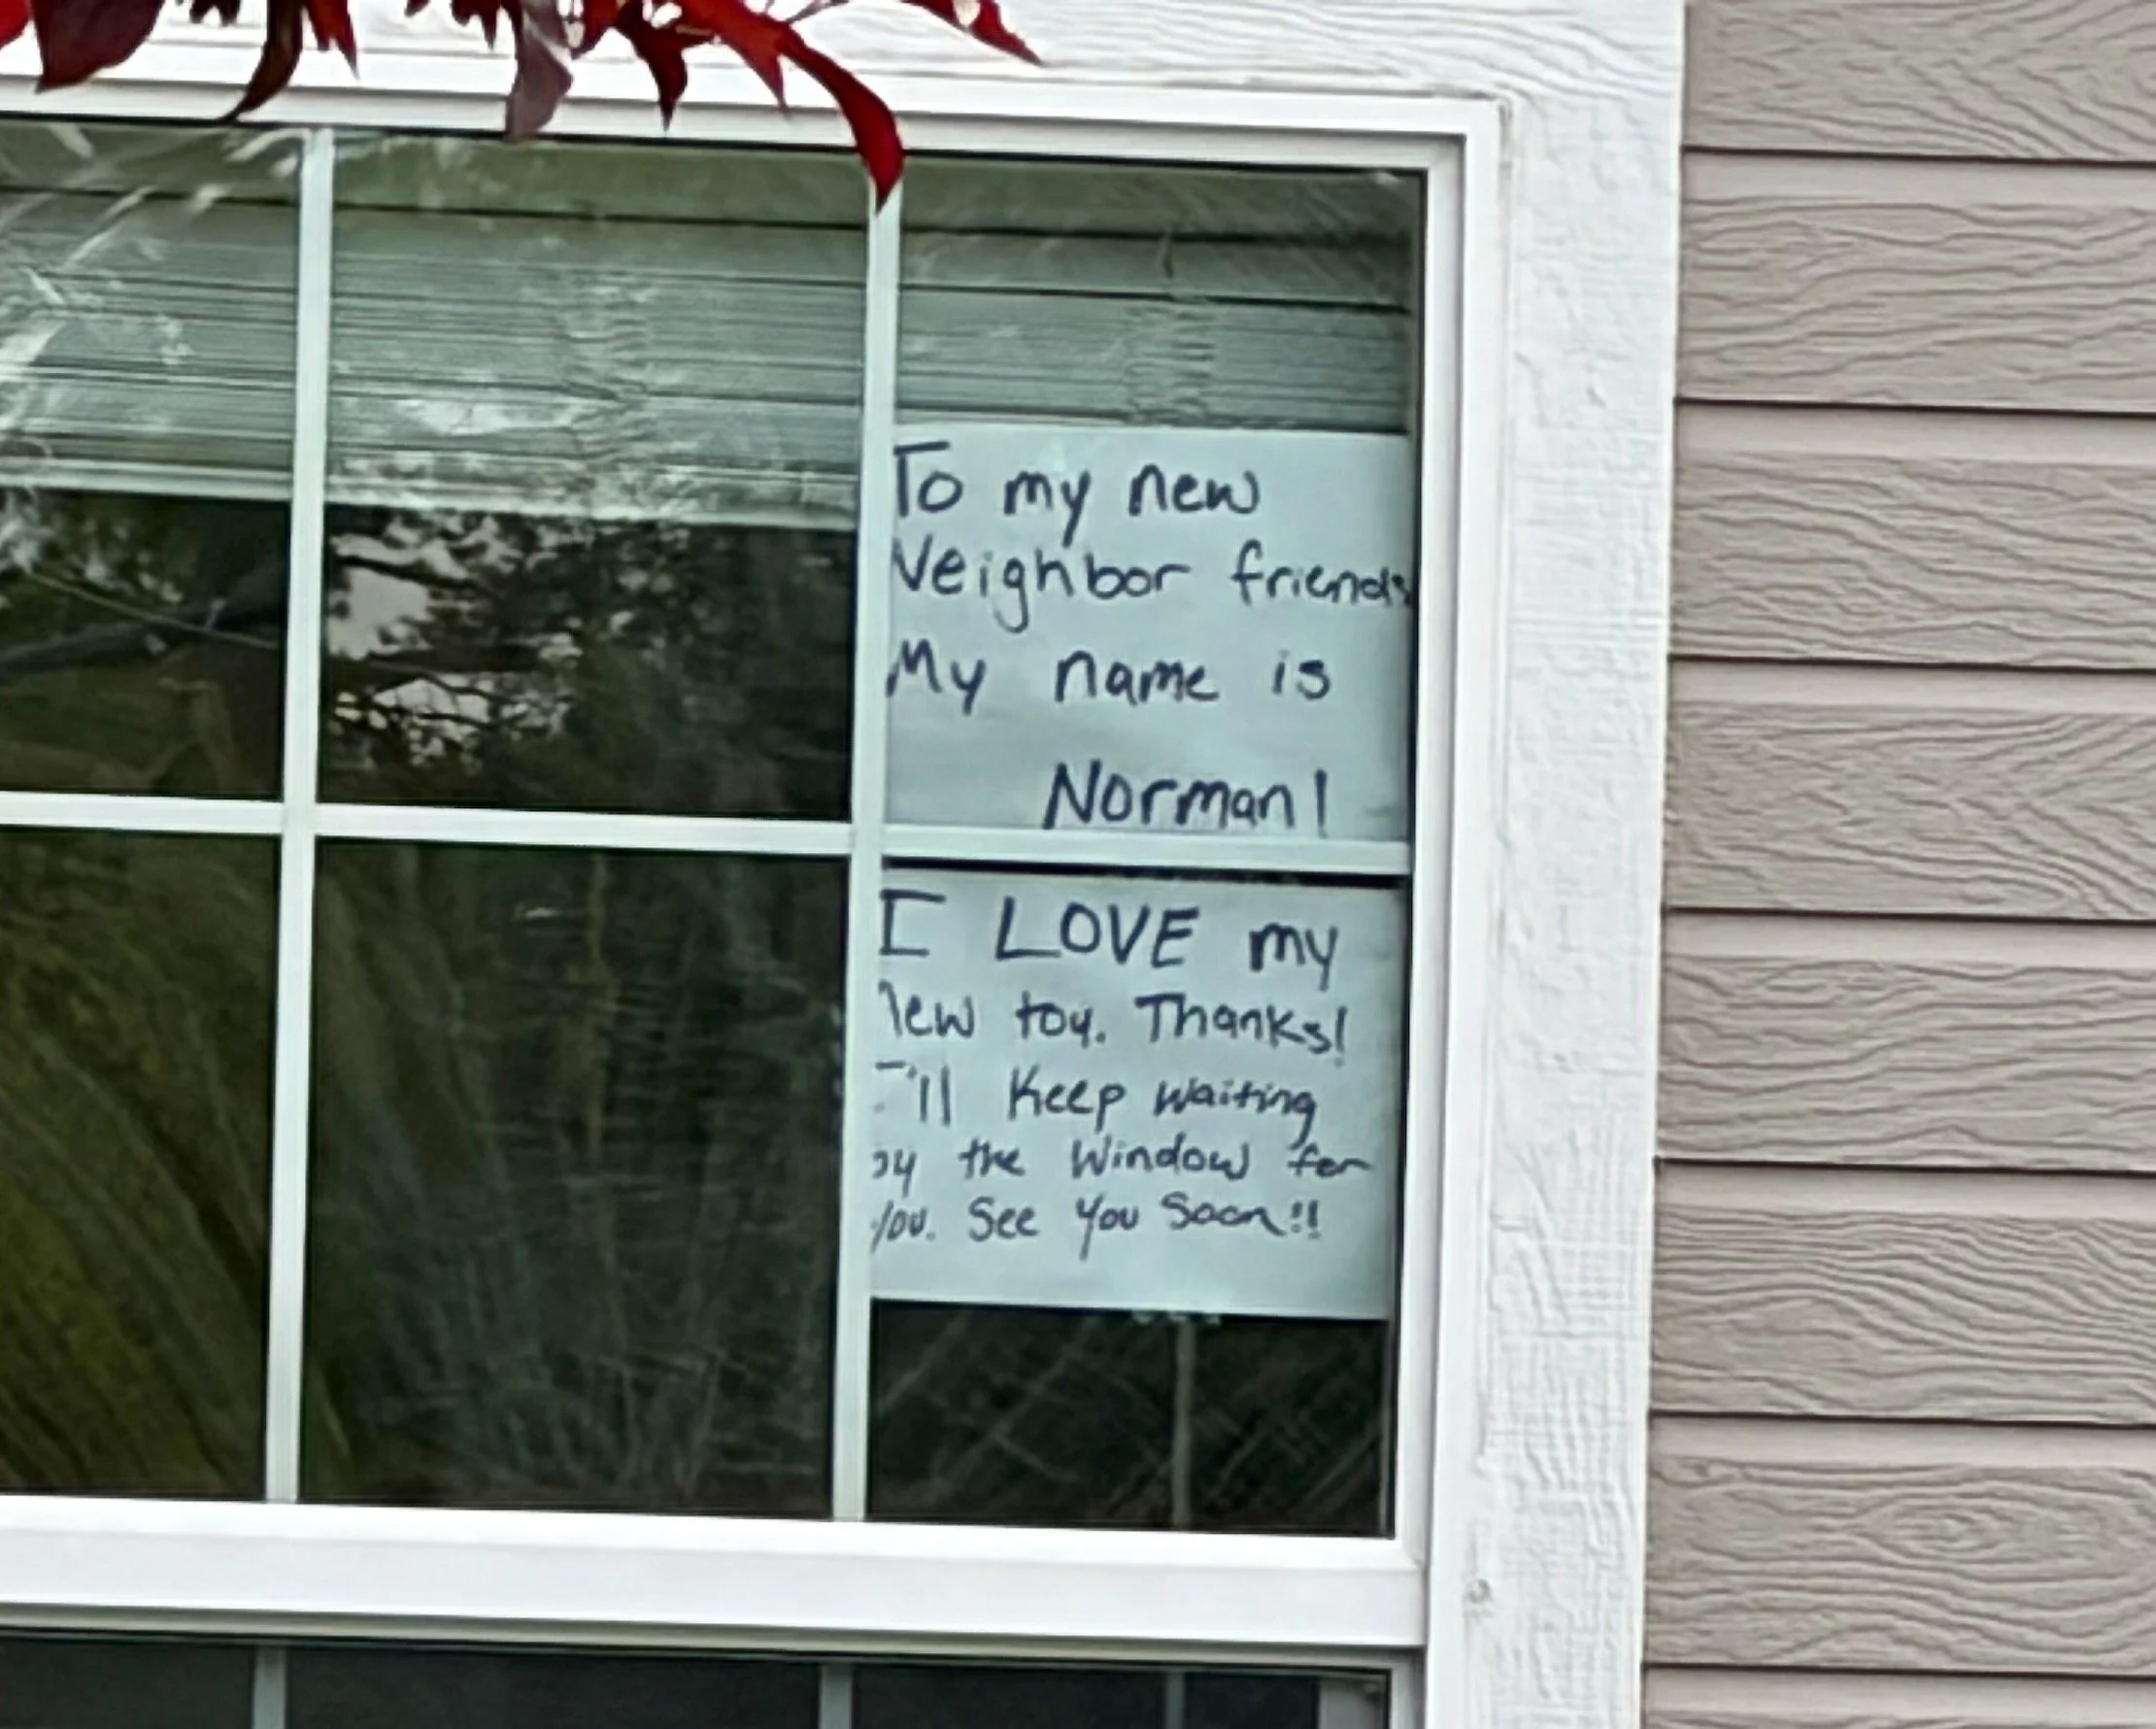 To my new
Neighbor friends
My name is
Norman!
I LOVE my
new toy. Thanks!
I'll Keep waiting
by the Window for
you. See You Soon!!